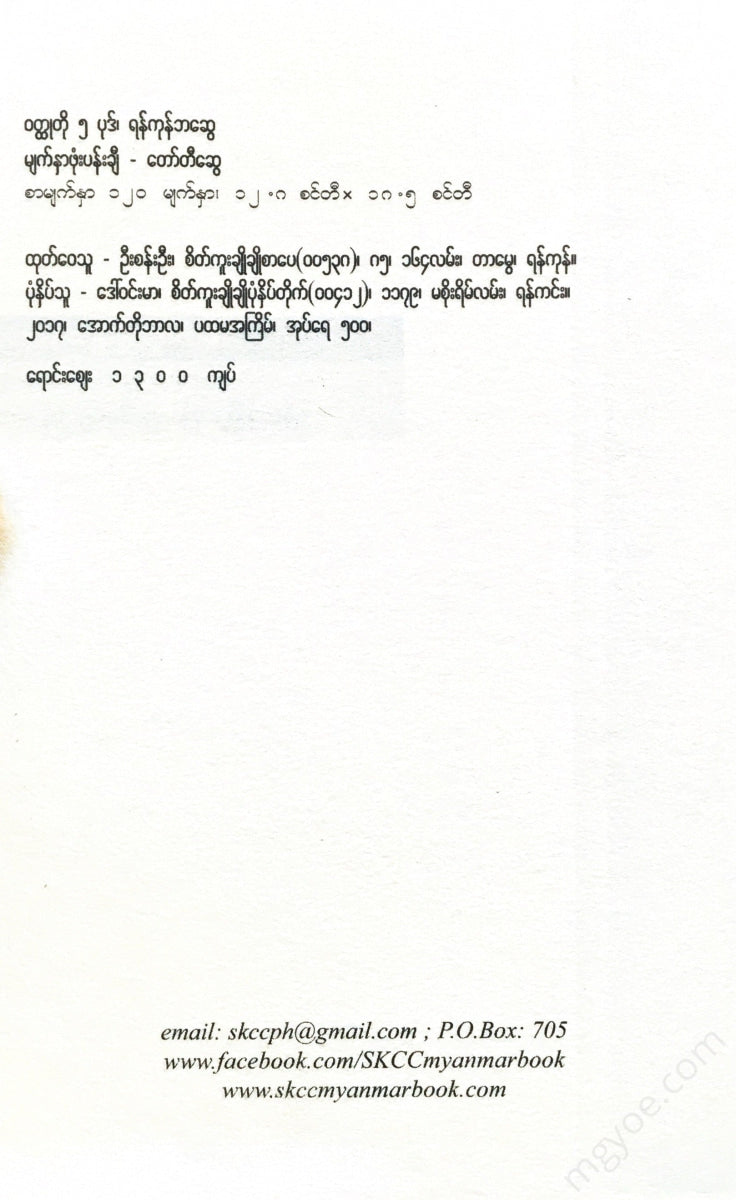 ဝတ္ထုတို ၅ ပုဒ်၊ ရန်ကုန်ဘဆွေ
မျက်နှာဖုံးပန်းချီ - တော်တီဆွေ
စာမျက်နှာ ၁၂၀ မျက်နှာ၊ ၁၂.၈ စင်တီ× ၁၈.၅ စင်တီ
ထုတ်ဝေသူ - ဦးစန်းဦး၊ စိတ်ကူးချိုချိုစာပေ(၀၀၅၃၈)၊ ၈၅၊ ၁၆၄လမ်း၊ တာမွေ၊ ရန်ကုန်။
ပုံနှိပ်သူ - ဒေါ်ဝင်းမာ၊ စိတ်ကူးချိုချိုပုံနှိပ်တိုက်(၀၀၄၁၂)၊ ၁၁၇၉၊ မစိုးရိမ်လမ်း၊ ရန်ကင်း။
၂၀၁၇၊ အောက်တိုဘာလ၊ ပထမအကြိမ်၊ အုပ်ရေ ၅၀၀၊
ရောင်းဈေး ၁ ၃ ၀ ၀ ကျပ်
email: skccph@gmail.com ; P.O.Box: 705
www.facebook.com/SKCCmyanmarbook
www.skccmyanmarbook.com
mgyoe.com